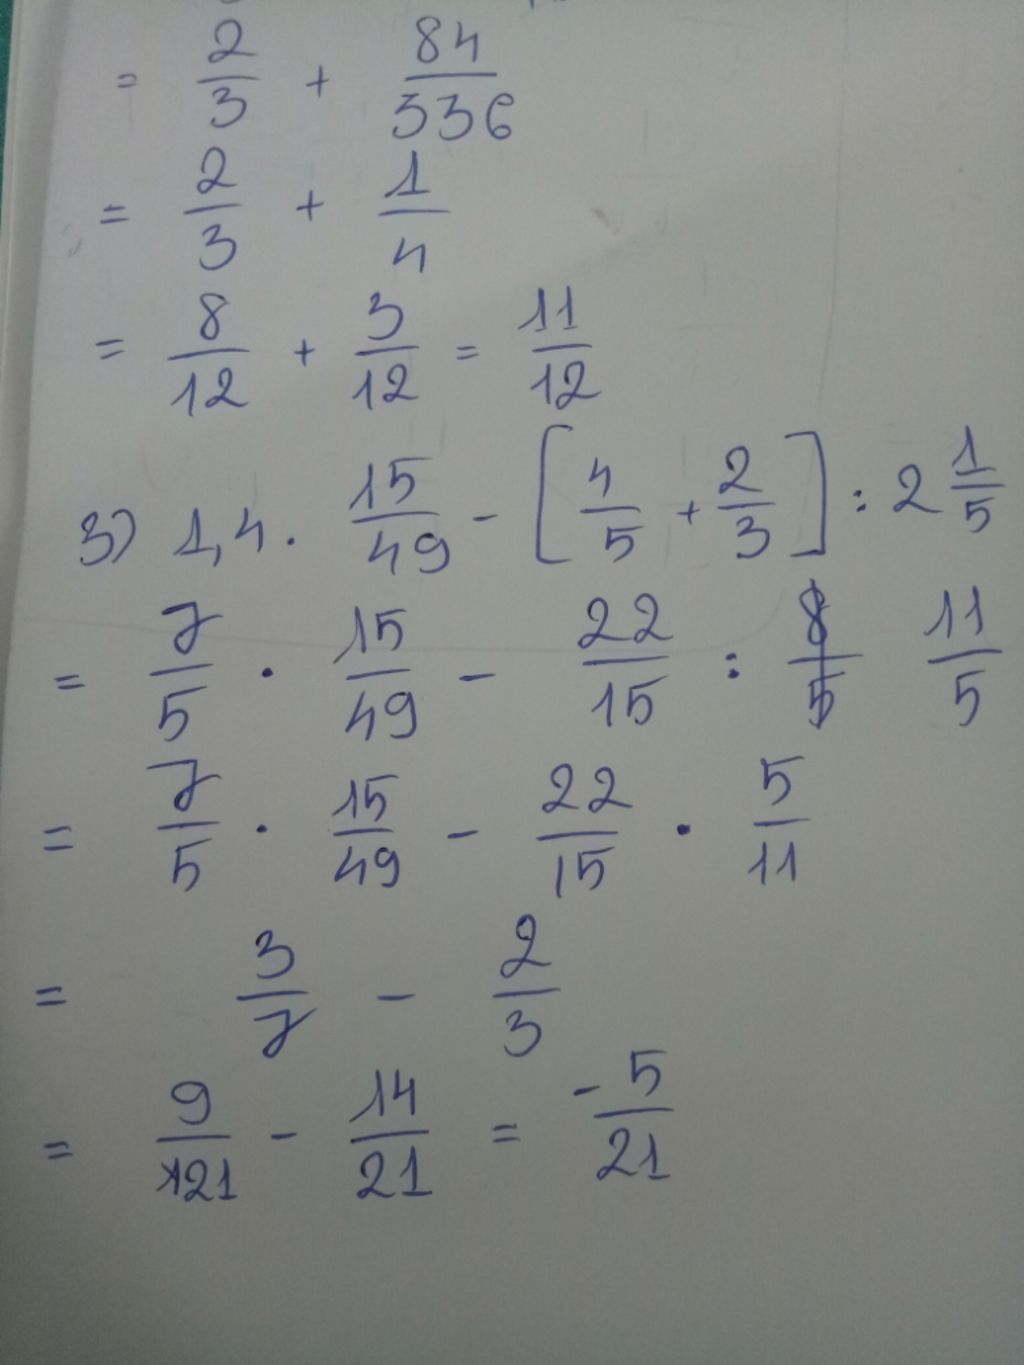 = 2/3 + 84/336
= 2/3 + 1/4
= 8/12 + 3/12 = 11/12
3) 1,4 . 15/49 - [4/5 + 2/3] : 2 1/5
= 7/5 . 15/49 - 22/15 : 8/5 11/5
= 7/5 . 15/49 - 22/15 . 5/11
= 3/7 - 2/3
= 9/21 - 14/21 = -5/21